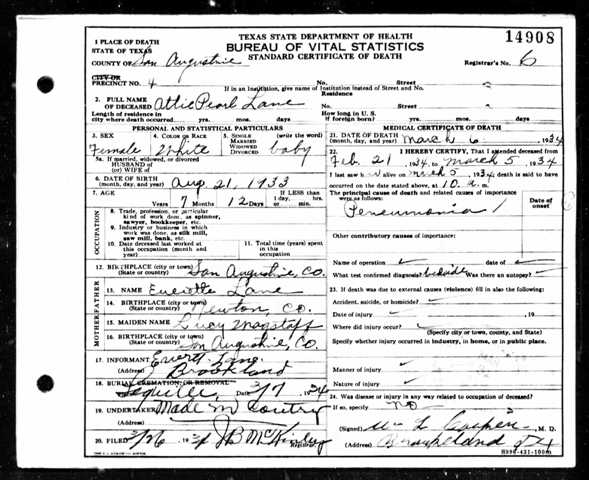 TEXAS STATE DEPARTMENT OF HEALTH
BUREAU OF VITAL STATISTICS
STANDARD CERTIFICATE OF DEATH
14908
1 PLACE OF DEATH
STATE OF TEXAS
COUNTY OF San Augustine
Registrar's No. 6
CITY OR
PRECINCT NO. 4 No. Street
If in an Institution, give name of Institution instead of Street and No.
2. FULL NAME OF DECEASED Attie Pearl Lane
Residence No. Street
Length of residence in city where death occurred yrs. mos. days
How long in U. S. if foreign born? yrs. mos. days
PERSONAL AND STATISTICAL PARTICULARS
3. SEX Female
4. COLOR OR RACE White
5. SINGLE MARRIED WIDOWED DIVORCED (write the word) baby
5a. If married, widowed, or divorced
HUSBAND of
(or) WIFE of
6. DATE OF BIRTH (month, day, and year) Aug. 21, 1933
7. AGE Years 7 Months 12 Days
If LESS than 1 day, hrs. or min.
OCCUPATION
8. Trade, profession, or particular kind of work done, as spinner, sawyer, bookkeeper, etc.
9. Industry or business in which work was done, as silk mill, saw mill, bank, etc.
10. Date deceased last worked at this occupation (month and year)
11. Total time (years) spent in this occupation
12. BIRTHPLACE (city or town) (State or country) San Augustine, Co.
FATHER
13. NAME Lane
14. BIRTHPLACE (city or town) (State or country) Newton, Co.
MOTHER
15. MAIDEN NAME Lucy
16. BIRTHPLACE (city or town) (State or country) San Augustine, Co.
17. INFORMANT Lane
(Address) Brookland
18. BURIAL, CREMATION, OR REMOVAL
Date 3/7 1934
19. UNDERTAKER
20. FILED 1934 J B McKinley
Registrar
MEDICAL CERTIFICATE OF DEATH
21. DATE OF DEATH (month, day, and year) March 6 1934
22. I HEREBY CERTIFY, That I attended deceased from
Feb 21, 1934, to March 5, 1934
I last saw alive on March 5 1934 death is said to have
occurred on the date stated above, at 10 a. m.
The principal cause of death and related causes of importance were as follows:
Date of onset
Other contributory causes of importance:
Name of operation date of
What test confirmed diagnosis? bedside Was there an autopsy?
23. If death was due to external causes (violence) fill in also the following:
Accident, suicide, or homicide?
Date of injury 19
Where did injury occur?
(Specify city or town, county, and State)
Specify whether injury occurred in Industry, in home, or in public place.
Manner of injury
Nature of injury
24. Was disease or injury in any way related to occupation of deceased?
If so, specify no
(Signed) M. D.
(Address)